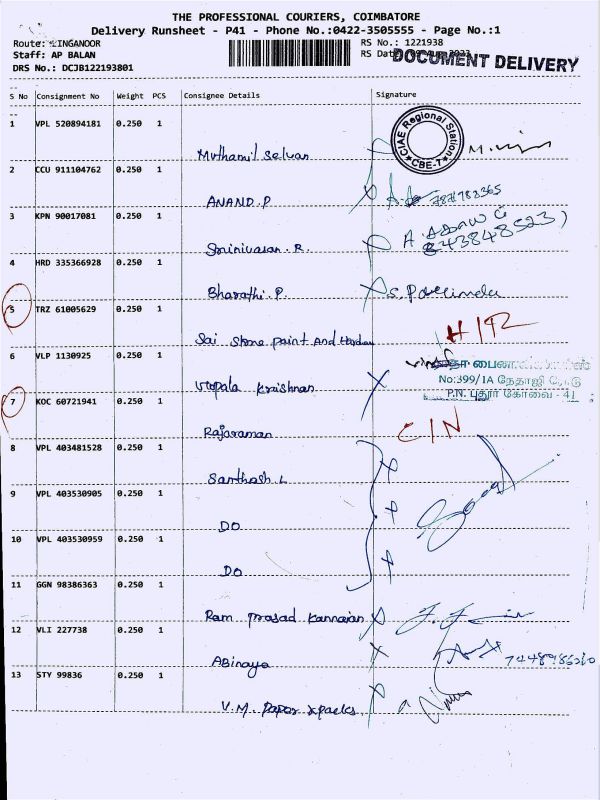 THE PROFESSIONAL COURIERS, COIMBATORE
Delivery Runsheet - P41 - Phone No.:0422-3505555 - Page No.:1
Route: LINGANOOR
RS No.: 1221938
Staff: AP BALAN
RS Date
DOCUMENT DELIVERY
DRS No.: DCJB122193801
S No Consignment No Weight PCS Consignee Details Signature
1 VPL 520894181 0.250 1
CIAE Regional Station
CBE-7
Muthamil Selvan
2 CCU 911104762 0.250 1
ANAND.P
3 KPN 90017081 0.250 1
Srinivasan.R.
4 HRD 335366928 0.250 1
Bharathi.P.
5 TRZ 61005629 0.250 1
Sai Stone paint And
6 VLP 1130925 0.250 1
No:399/1A நேதாஜி ரோடு
P.N. புதூர் கோவை - 41
Krishnan
7 KOC 60721941 0.250 1
Rajaraman
8 VPL 403481528 0.250 1
Santhosh.L
9 VPL 403530905 0.250 1
DO
10 VPL 403530959 0.250 1
DO
11 GGN 98386363 0.250 1
Ram Prasad Kannaian
12 VLI 227738 0.250 1
Abinaya
13 STY 99836 0.250 1
V.M. Paper